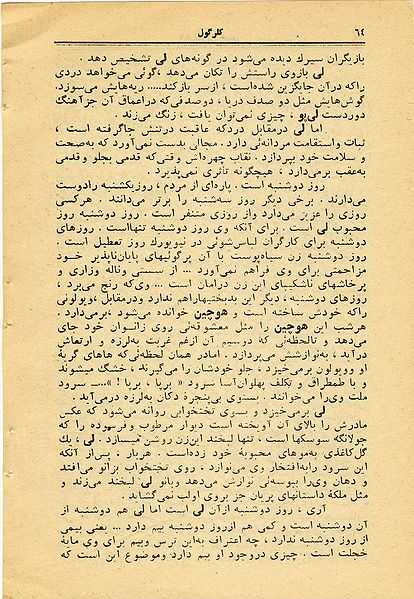 ٦٤
کلرگول
بازیگران سیرك دیده می‌شود در گونه‌های لی تشخیص دهد .
لی بازوی راستش را تکان می‌دهد ،گوئی می‌خواهد دردی
راکه درآن جایگزین شده‌است ، ازسر بازکند..... ریه‌هایش می‌سوزد.
گوش‌هایش مثل دو صدف دریا ، دوصدفی‌که دراعماق آن جزآهنگ
دوردست لی‌پو ، چیزی نمی‌توان یافت ، زنگ می‌زند.
اما لی درمقابل دردکه عاقبت درتنش جاگرفته است ،
ثبات واستقامت مردانه‌ئی دارد. مجالی بدست نمی‌آورد که به‌صحت
و سلامت خود بپردازد . نقاب چهره‌اش وقتی‌که قدمی بجلو و قدمی
به‌عقب برمی‌دارد ، هیچگونه تأثری نمی‌پذیرد .
روز دوشنبه است . پاره‌ای از مردم ، روزیکشنبه رادوست
می‌دارند . برخی دیگر روز سه‌شنبه را برتر می‌دانند . هرکسی
روزی را عزیز می‌دارد واز روزی متنفر است . روز دوشنبه روز
محبوب لی است . برای آنکه وی روز دوشنبه تنهااست . روزهای
دوشنبه برای کارگران لباس‌شوئی در نیویورك روز تعطیل است .
روز دوشنبه زن سیاه‌پوست با آن پرگوئیهای پایان‌ناپذیر خود
مزاحمتی برای وی فراهم نمی‌آورد ... از سستی وناله وزاری و
پرخاشهای ناشکیبای این زن درامان است ... وی‌که رنج می‌برد ،
روزهای دوشنبه ، دیگر این بدبختیهاراهم ندارد ودرمقابل ،ویولونی
راکه خودش ساخته است و هوچین خوانده می‌شود ،برمی‌دارد .
هرشب این هوچین را مثل معشوقه‌ئی روی زانوان خود جای
می‌دهد و تالحظه‌ئی که دوسیم آن ازغم غربت به‌لرزه و ارتعاش
درآید ، به‌نوازشش می‌پردازد . امادر همان لحظه‌ئی‌که هاهای گریهٔ
او وویولون برمی‌خیزد ، جلو خودشان را می‌گیرند ، خشگ میشوند
و با طمطراق و تکلف پهلوان‌آسا سرود « برپا ، برپا ! »..... سرود
ملت وی‌را می‌خوانند . بستوی بی‌پنجرهٔ دکان به‌لرزه درمی‌آید .
لی برمی‌خیزد و بسوی تختخوابی روانه می‌شود که عکس
مادرش را بالای آن آویخته است دیوار مرطوب وفرسوده را که
جولانگه سوسکها است ، تنها لبخند این‌زن روشن میسازد . لی ، یك
گل‌کاغذی به‌موهای محبوبهٔ خود زده‌است . هربار ، پس‌از آنکه
این سرود رابه‌افتخار وی می‌نوازد ، روی تختخواب بزانو می‌افتد
و دهان وی‌را ببوسه‌ئی نوازش می‌دهد وبانو لی لبخند می‌زند و
مثل ملکهٔ داستانهای پریان جز بروی اولب نمی‌گشاید .
آری ، روز دوشنبه ازآن لی است اما لی هم دوشنبه از
آن دوشنبه است و کمی هم ازروز دوشنبه بیم دارد ... یعنی بیمی
از روز دوشنبه ندارد ، چه اعتراف به‌این ترس وبیم برای وی مایهٔ
خجلت است . چیزی دروجود او بیم دارد وموضوع این است که